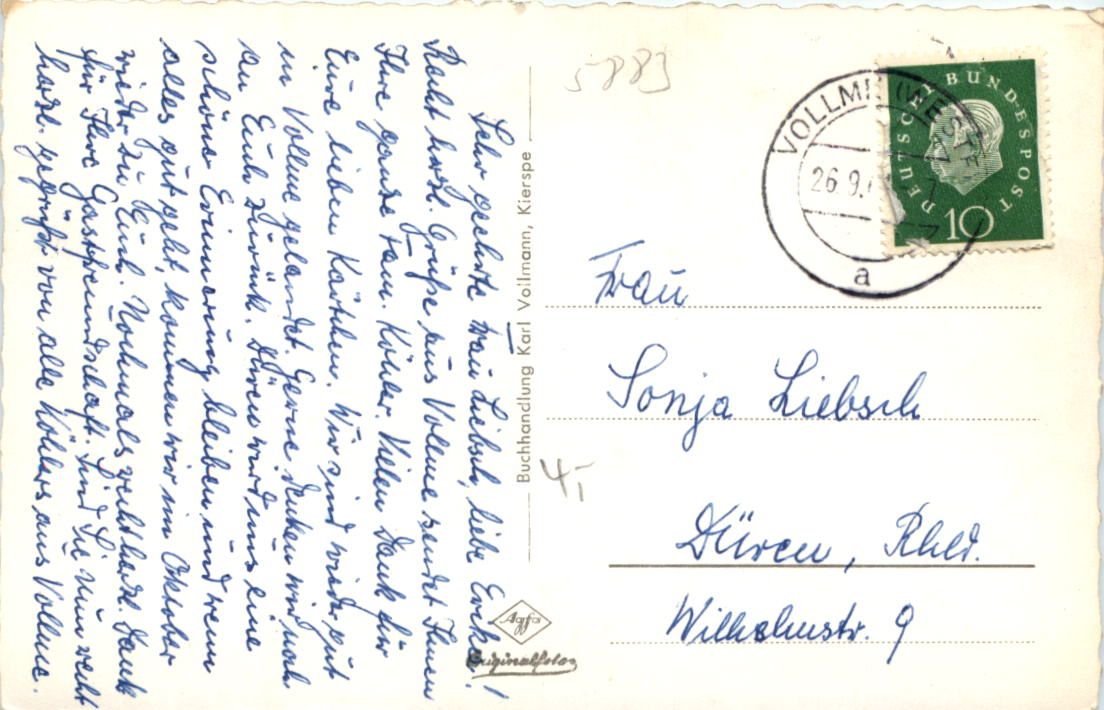 Sehr geehrte Frau Liebsch, liebe Erika!
Recht herzl. Grüße aus Vollme sendet Ihnen
Ihre ganze Fam. Köhler. Vielen Dank für
Eure lieben Kärtchen. Wir sind wieder gut
in Vollme gelandet. Gerne denken wir noch
an Euch zurück. Düren wird uns eine
schöne Erinnerung bleiben und wenn
alles gut geht, kommen wir im Oktober
wieder zu Euch. Nochmals recht herzl. Dank
für Ihre Gastfreundschaft. Sind Sie nun recht
herzl. gegrüßt von alle Köhlers aus Vollme.
Buchhandlung Karl Vollmann, Kierspe
Agfa
Originalfoto
5883
4,-
VOLLME (WESTF
26.9.
a
DEUTSCHE BUNDESPOST
10
Frau
Sonja Liebsch
Düren, Rhld.
Wilhelmstr. 9